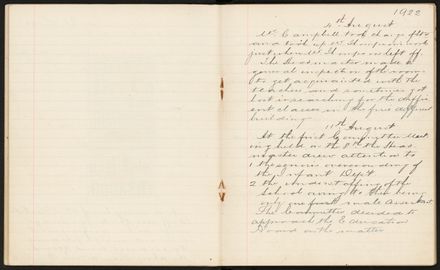 1922
4th August
Mr. Campbell took charge
and took up Mr Thompson's work
just where Mr Thompson left off
The Headmaster made a
general inspection of the rooms
to get acquainted with the
teachers and sometimes got
lost in searching for the differ
ent classes in the five different
building
11th August
At the first Committee Meet
ing held on the 8th the Head
master drew attention to
1 the serious overcrowding of
the Infant Dept
2 the understaffing of the
School owing to there being
only one male Assistant
The Committee decided to
approach the Education
Board on the matter